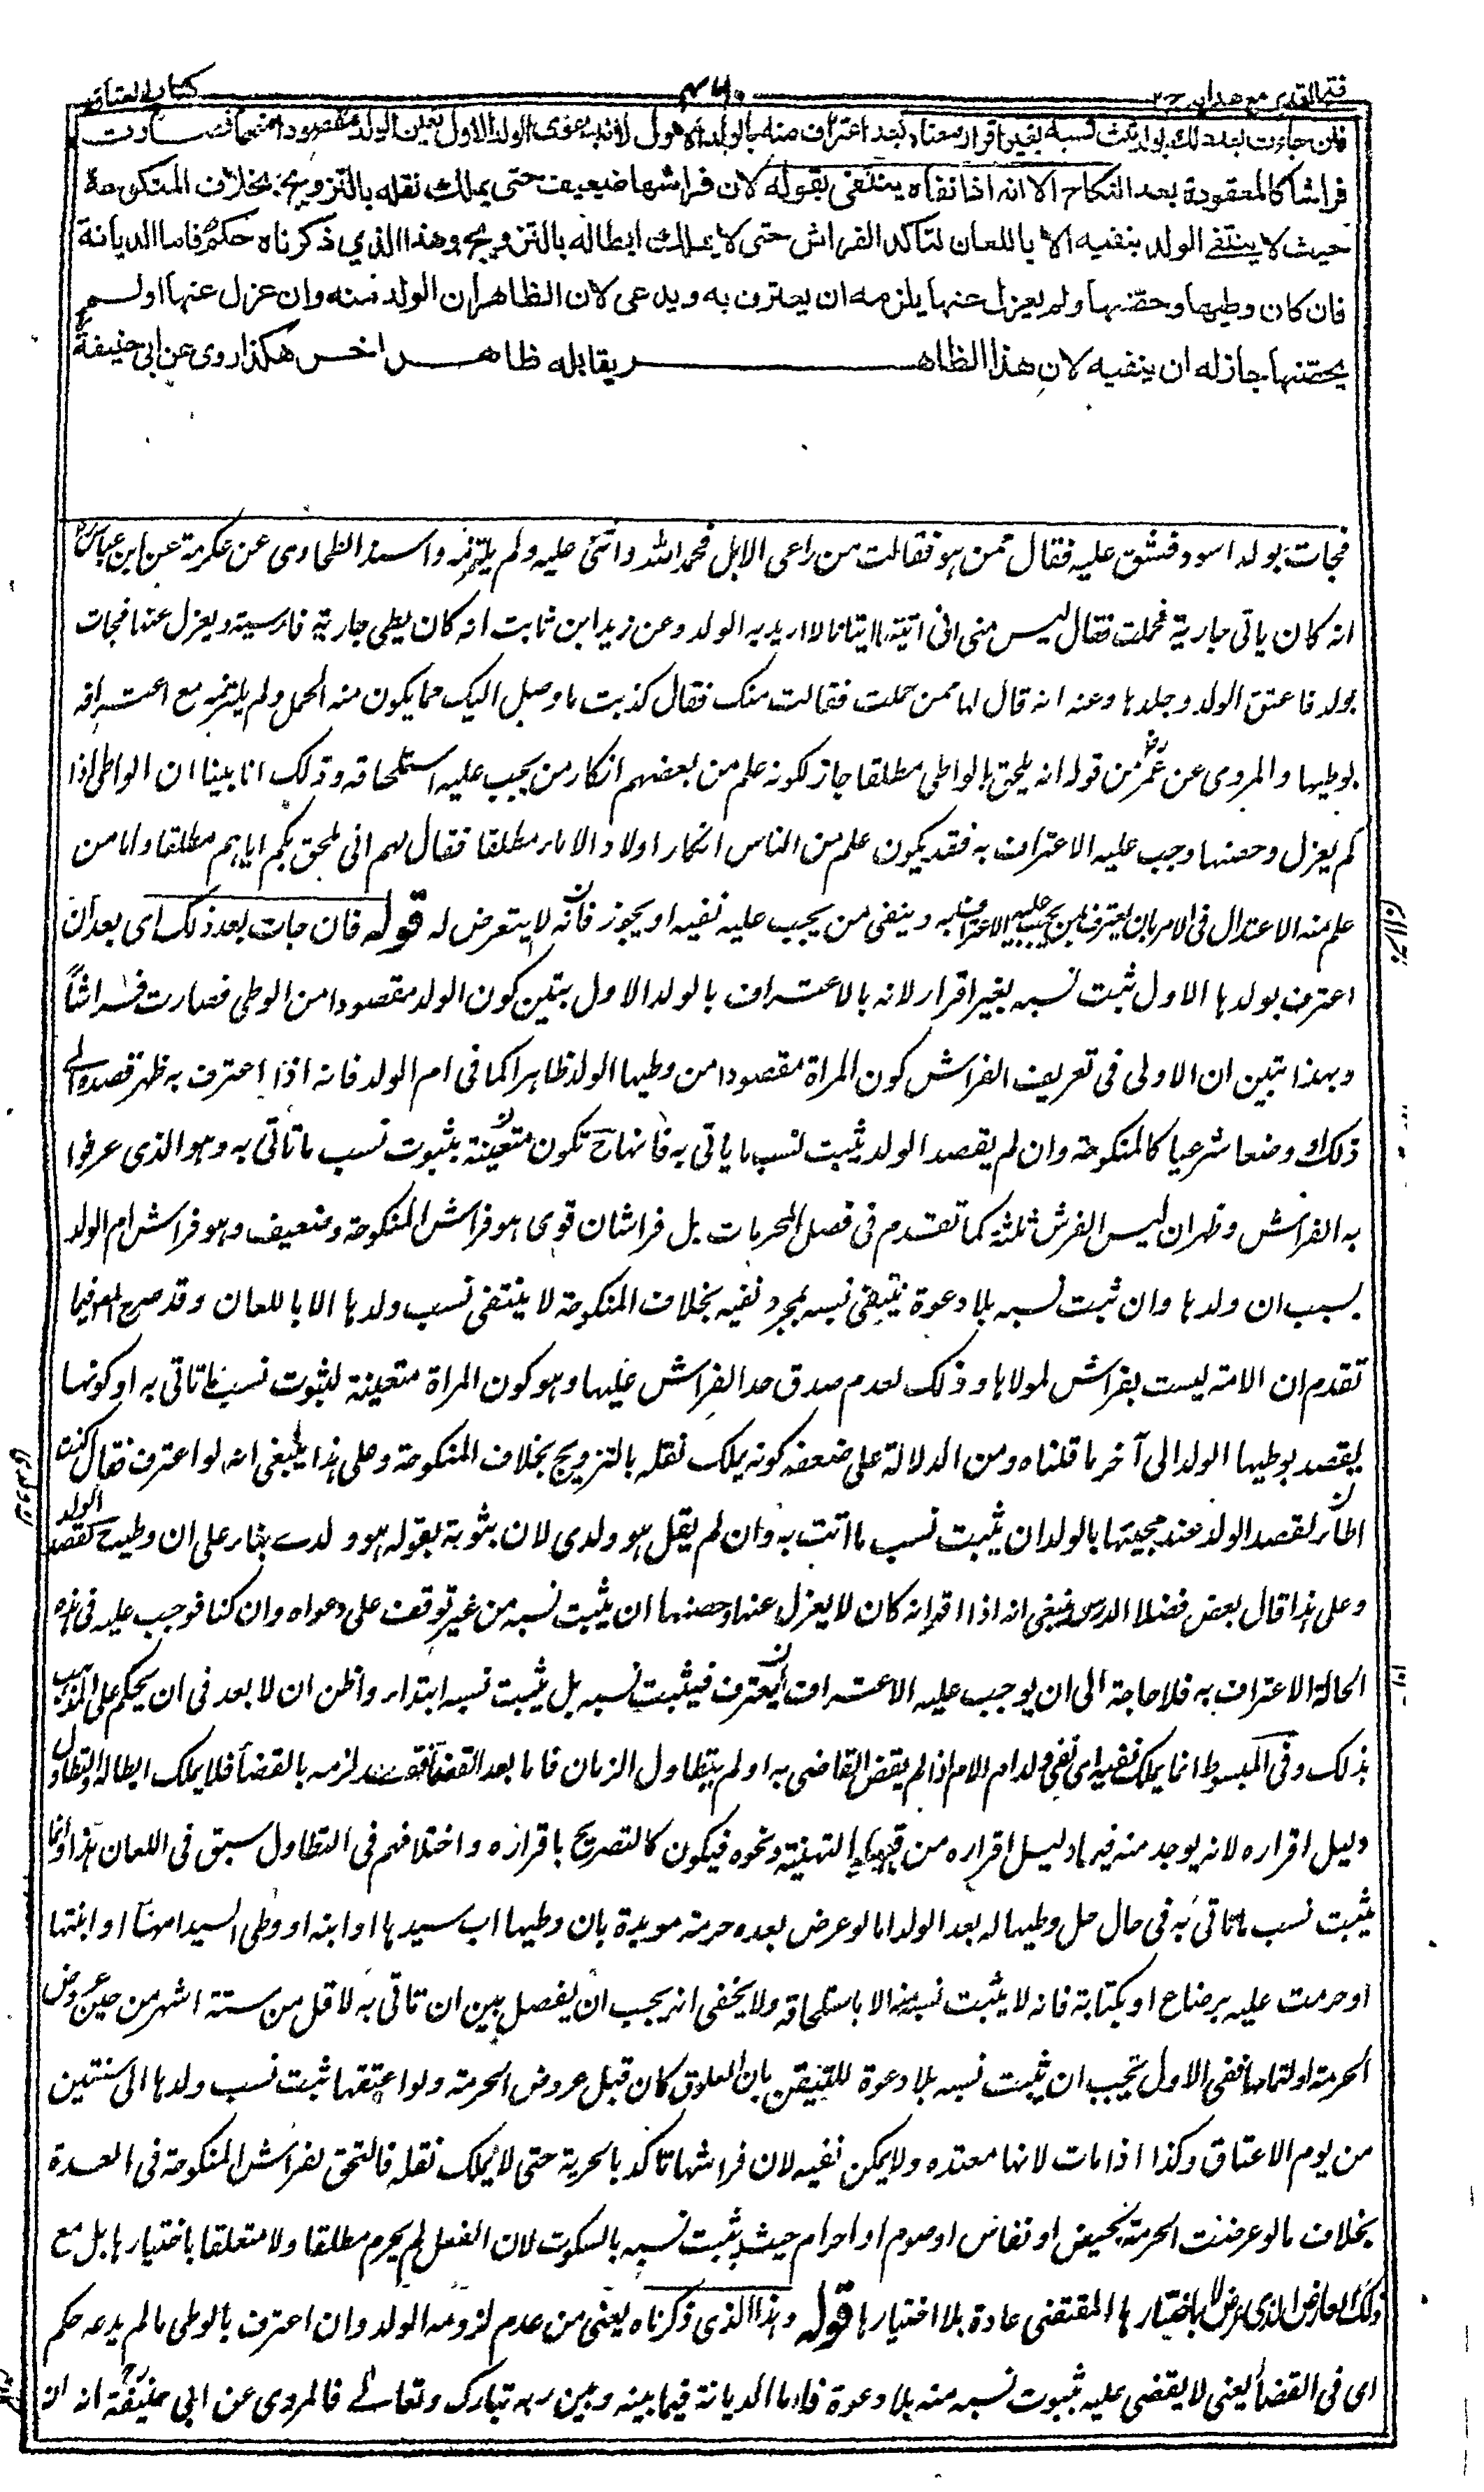 فتح القدير مع هدايه ج ٢
كتاب العتاق
فان جاءت بعد ذلك بولد يثبت نسبه بغير اقرار معناه بعد اعتراف منه بالولد الاول لانه بدعوى الولد الاول تعين الولد مقصودا منها فصارت
فراشا كالمعقودة بعد النكاح الا انه اذا نفاه ينتفى بقوله لان فراشها ضعيف حتى يملك نقله بالتزويج بخلاف المنكوحة
حيث لا ينتفى الولد بنفيه الا باللعان لتاكد الفراش حتى لا يملك ابطاله بالتزويج وهذا الذي ذكرناه حكم فاما الديانة
فان كان وطيها وحصّنها ولم يعزل عنها يلزمه ان يعترف به ويدعى لان الظاهر ان الولد منه وان عزل عنها او لم
يحصّنها جاز له ان ينفيه لان هذا الظاهر يقابله ظاهر اخر هكذا روى عن ابى حنيفة
فجات بولد اسود فشق عليه فقال ممن هو فقالت من راعى الابل فحمد الله واثنى عليه ولم يلتزمه واسند الطحاوى عن عكرمة عن ابن عباس
انه كان ياتى جارية فحملت فقال ليس منى انى اتيتها اتيانا لا اريد به الولد وعن زيد ابن ثابت انه كان يطى جارية فارسية ويعزل عنها فجات
بولد فاعتق الولد وجلدها وعنه انه قال لها ممن حملت فقالت منك فقال كذبت ما وصل اليك مما يكون منه الحمل ولم يلتزمه مع اعترافه
بوطيها والمروى عن عمر من قوله انه يلحق بالواطى مطلقا جاز لكونه علم من بعضهم انكار من يجب عليه استلحاقه وذلك انا بينا ان الواطى اذا
لم يعزل وحصنها وجب عليه الاعتراف به فقد يكون علم من الناس انكار اولاد الاماء مطلقا فقال لهم انى ملحق بكم اياهم مطلقا واما من
علم منه الاعتدال فى الامر بان يعترف بمن يجب عليه الاعتراف به وينفى من يجب عليه نفيه او يجوز فانه لا يتعرض له قوله فان جات بعد ذلك اى بعد ان
اعترف بولدها الاول ثبت نسبه بغير اقرار لانه بالاعتراف بالولد الاول يتبين كون الولد مقصودا من الوطى فصارت فراشاً
وبهذا تبين ان الاولى فى تعريف الفراش كون المراة مقصودا من وطيها الولد ظاهرا كما فى ام الولد فانه اذا اعترف به ظهر قصده الى
ذلك او وضعا شرعيا كالمنكوحة وان لم يقصد الولد يثبت نسب ما ياتى به فانها ح تكون متعينة بثبوت نسب ما تاتى به وهو الذى عرفوا
به الفراش وظهر ان ليس الفرش ثلثة كما تقدم فى فصل المحرمات بل فراشان قوى هو فراش المنكوحة وضعيف وهو فراش ام الولد
بسبب ان ولدها وان ثبت نسبه بلا دعوة ينتفى نسبه بمجرد نفيه بخلاف المنكوحة لا ينتفى نسب ولدها الا باللعان وقد صرح المص فيما
تقدم ان الامة ليست بفراش لمولاها وذلك لعدم صدق حد الفراش عليها وهو كون المراة متعينة لثبوت نسب ما تاتى به او كونها
يقصد بوطيها الولد الى آخر ما قلناه ومن الدلالة على ضعفه كونه يملك نقله بالتزويج بخلاف المنكوحة وعلى هذا ينبغى انه لو اعترف فقال كنت
اطأ لقصد الولد عند مجيئها بالولد ان يثبت نسب ما اتت به وان لم يقل هو ولدى لان ثبوته بقوله هو ولدى بناء على ان وطيه ح لقصد الولد
وعلى هذا قال بعض فضلاء الدرس ينبغى انه اذا اقر انه كان لا يعزل عنها وحصنها ان يثبت نسبه من غير توقف على دعواه وان كنا نوجب عليه فى هذه
الحالة الاعتراف به فلا حاجة الى ان يوجب عليه الاعتراف ليعترف فيثبت نسبه بل يثبت نسبه ابتداء واظن ان لا بعد فى ان يحكم على المذهب
بذلك وفى المبسوط انما يملك نفيه اى نفى ولد ام الولد اذا لم يقض القاضى به او لم يتطاول الزمان فاما بعد القضا فقد لزمه بالقضأ فلا يملك ابطاله والتطاول
دليل اقراره لانه يوجد منه فيها دليل اقراره من قبول التهنية ونحوه فيكون كالتصريح باقراره واختلافهم فى التطاول سبق فى اللعان هذا وانما
يثبت نسب ما تاتى به فى حال حل وطيها له بعد الولد اما لو عرض بعده حرمة موبدة بان وطيها اب سيدها او ابنه او وطى السيد امها او ابنتها
او حرمت عليه برضاع او بكتابة فانه لا يثبت نسبه منه الا باستلحاقه ولا يخفى انه يجب ان يفصل بين ان تاتى به لاقل من ستة اشهر من حين عروض
الحرمة او لتمامها ففى الاول يجب ان يثبت نسبه بلا دعوة للتيقن بان العلوق كان قبل عروض الحرمة ولو اعتقها ثبت نسب ولدها الى سنتين
من يوم الاعتاق وكذا اذا مات لانها معتده ولا يمكن نفيه لان فراشها تاكد بالحرية حتى لا يملك نقله فالتحق بفراش المنكوحة فى العدة
بخلاف ما لو عرضت الحرمة بحيض او نفاس او صوم او احرام حيث يثبت نسبه بالسكوت لان الفعل لم يحرم مطلقا ولا متعلقا باختيارها بل مع
ذلك العارض الذى عرض لا باختيارها المقتضى عادة بلا اختيارها قوله وهذا الذى ذكرناه يعنى من عدم لزومه الولد وان اعترف بالوطى ما لم يدعه حكم
اى فى القضأ يعنى لا يقضى عليه بثبوت نسبه منه بلا دعوة فاما الديانة فيما بينه وبين ربه تبارك وتعالى فالمروى عن ابى حنيفة انه ان